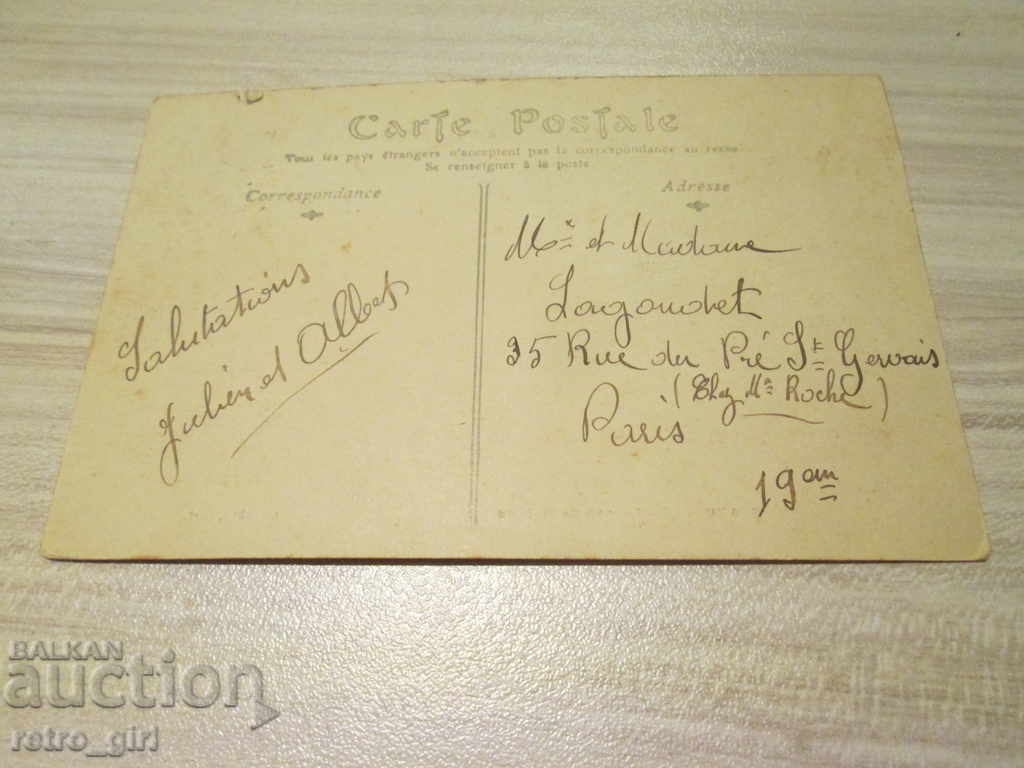 Carte Postale
Tous les pays étrangers n'acceptent pas la correspondance au recto
Se renseigner à la poste
Correspondance
Adresse
Salutations
Julien et Albert
Mr et Madame
Lagoudet
35 Rue du Pré St Gervais
(Chez Me Roche)
Paris
19 em
BALKAN
auction
retro_girl